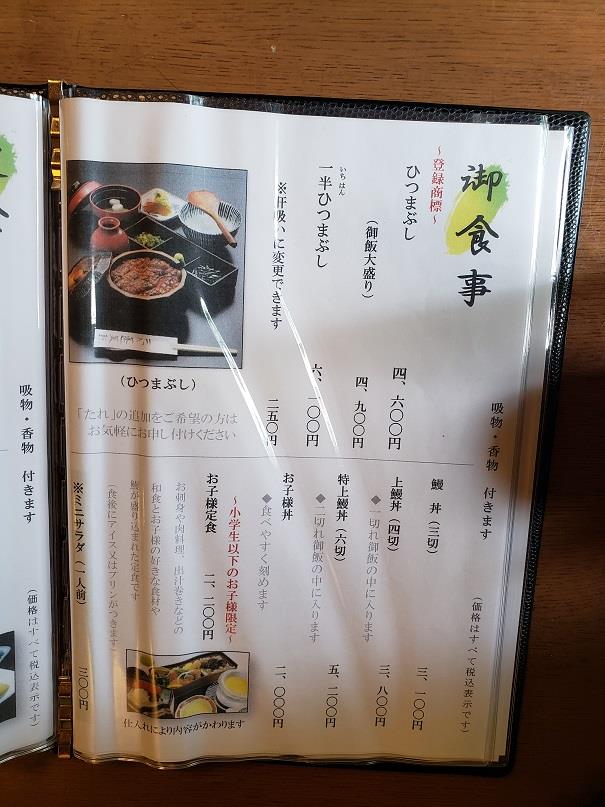 御食事
吸物・香物 付きます
～登録商標～
ひつまぶし
四、六〇〇円
(御飯大盛り)
四、九〇〇円
いちはん
一半ひつまぶし
六、一〇〇円
※肝吸いに変更できます
二五〇円
(ひつまぶし)
「たれ」の追加をご希望の方は
お気軽にお申し付けください
(価格はすべて税込表示です)
鰻丼(三切)
三、一〇〇円
上鰻丼(四切)
三、八〇〇円
◆一切れ御飯の中に入ります
特上鰻丼(六切)
五、二〇〇円
◆二切れ御飯の中に入ります
お子様丼
二、〇〇〇円
◆食べやすく刻めます
～小学生以下のお子様限定～
お子様定食
二、二〇〇円
お刺身や肉料理、出汁巻きなどの
和食とお子様の好きな食材や
鰻が盛り込まれた定食です
(食後にアイス又はプリンがつきます)
仕入れにより内容がかわります
※ミニサラダ(一人前)
三〇〇円
吸物・香物 付きます
(価格はすべて税込表示です)